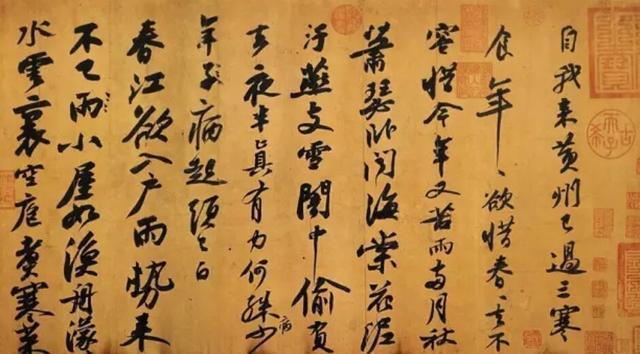 自我来黄州已過三寒
食年〻欲惜春〻去不
容惜今年又苦雨兩月秋
蕭瑟卧聞海棠花泥
汙燕支雪闇中偷負
去夜半真有力何殊病少
年子病起頭已白
春江欲入户雨勢来
不已雨小屋如漁舟濛
水雲裏空庖煑寒菜
古希天子